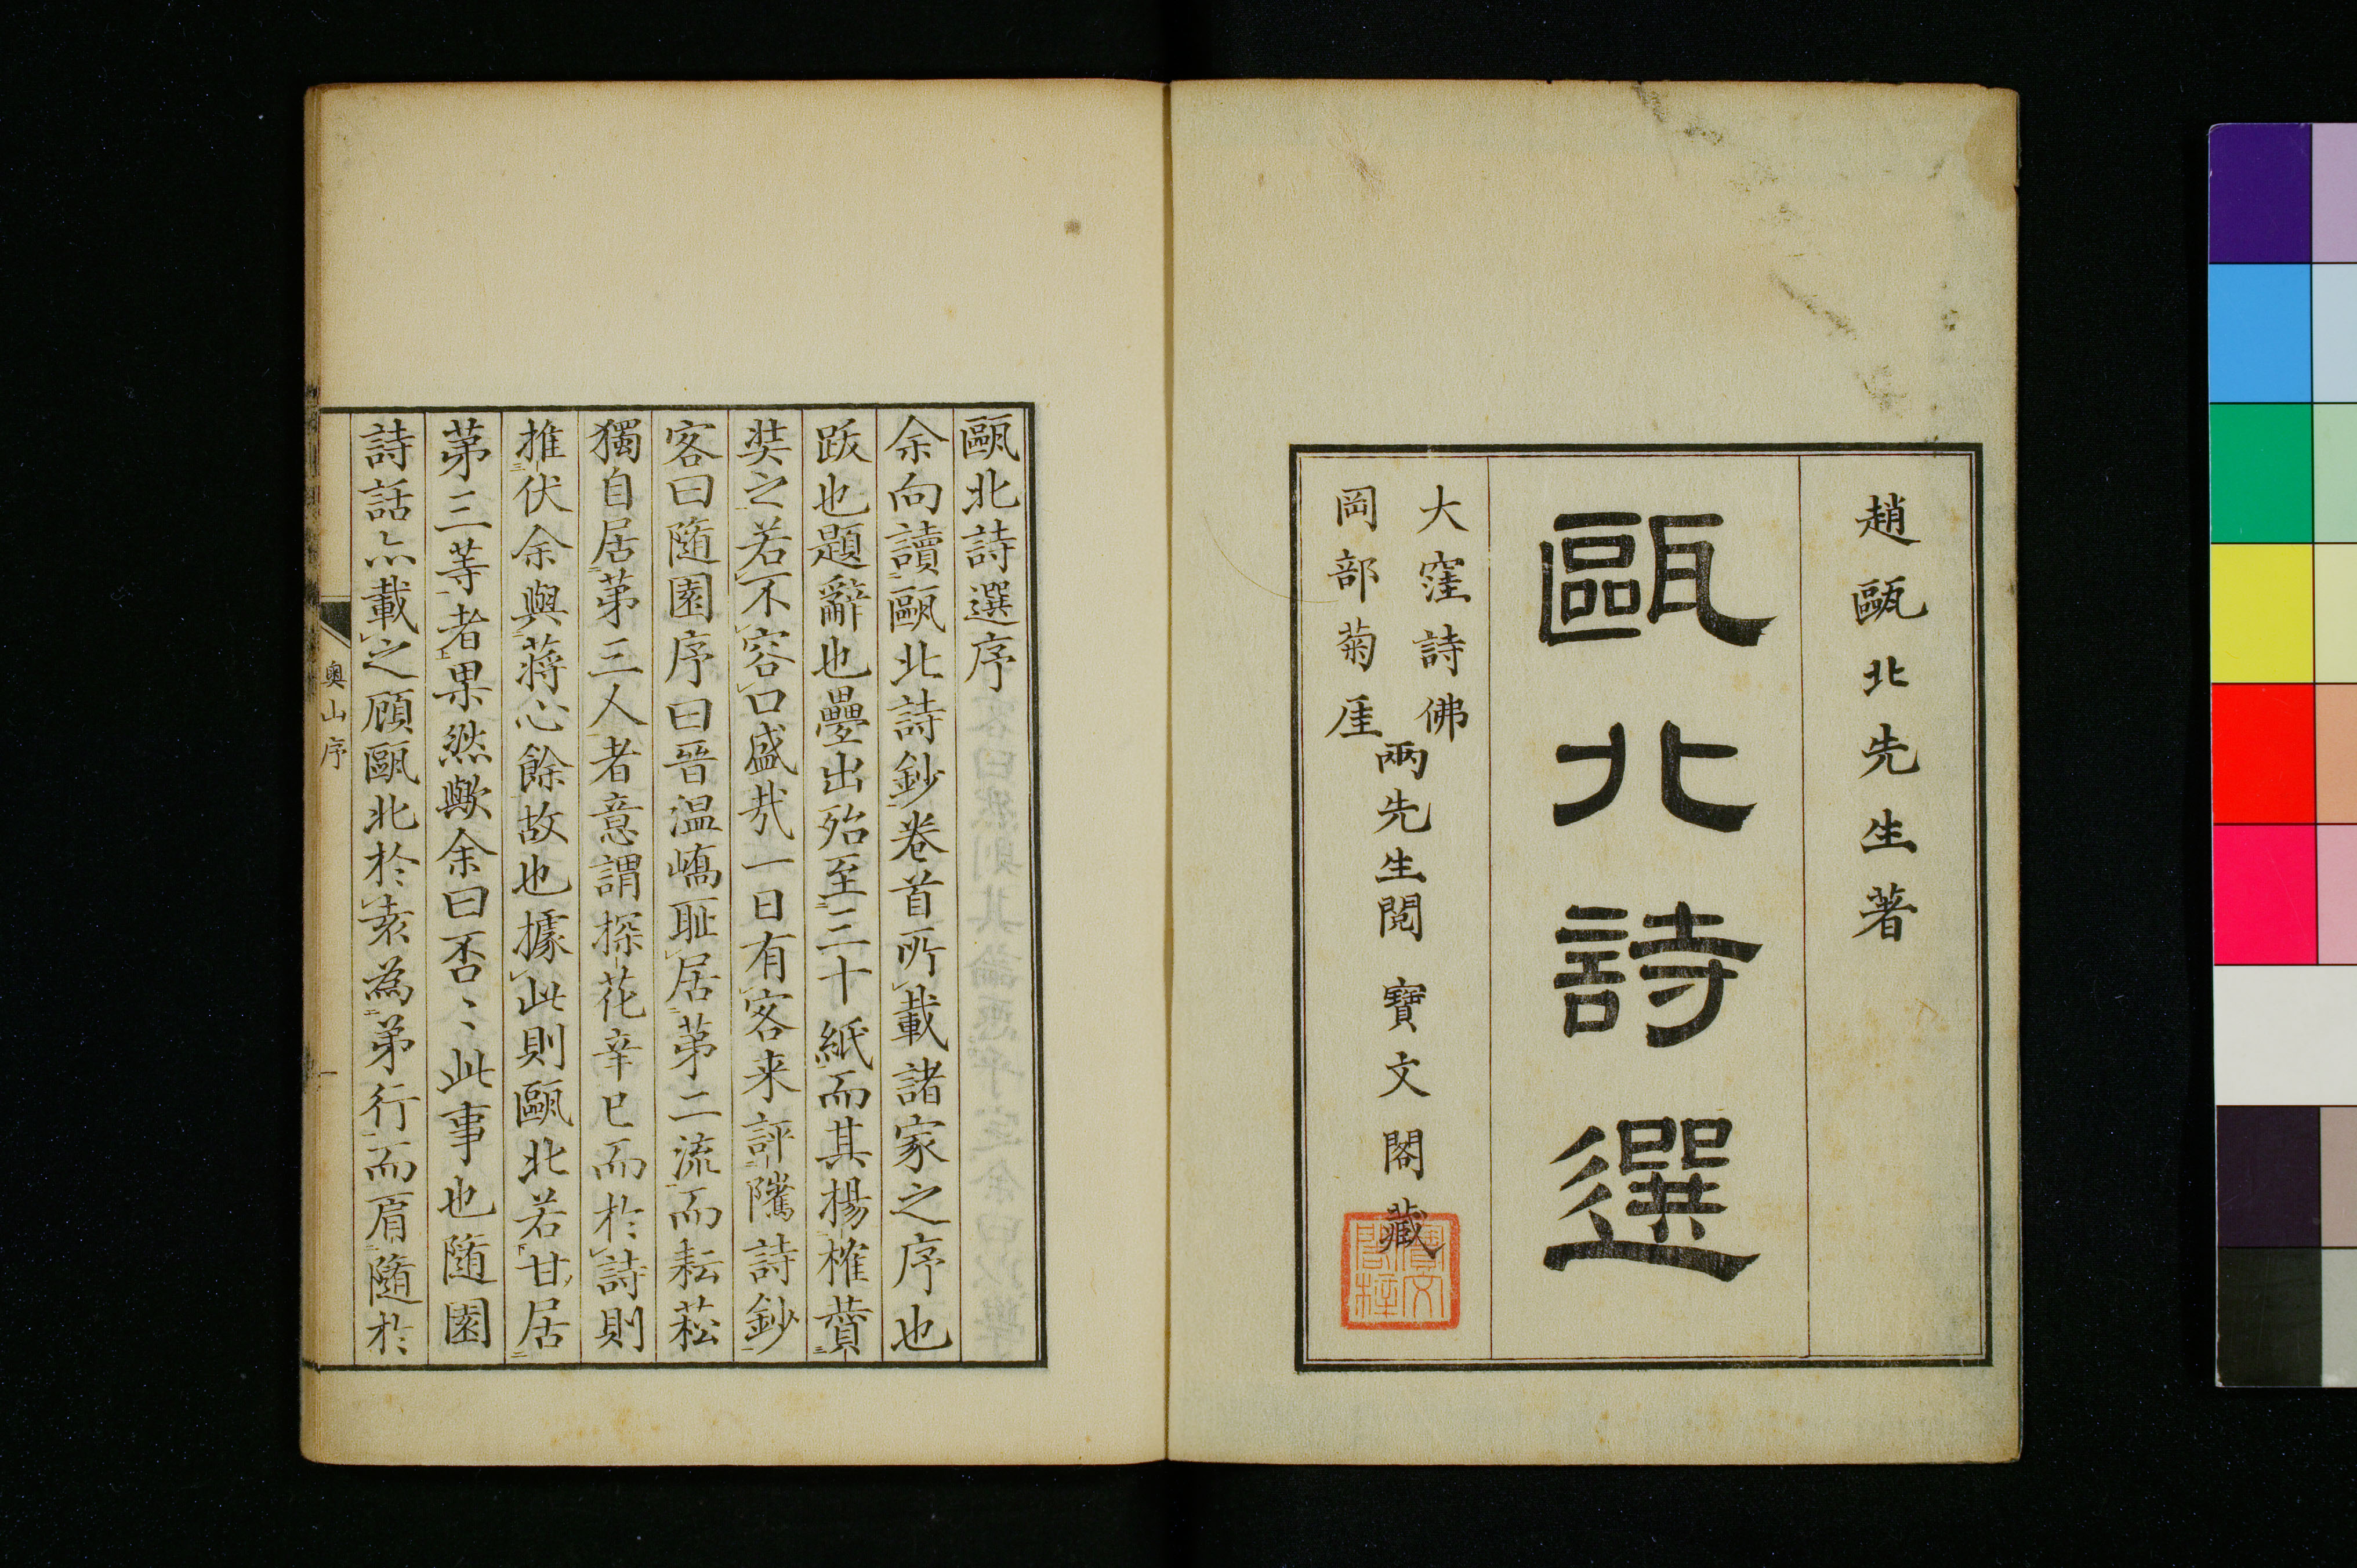 趙甌北先生著
甌北詩選
大窪詩佛
岡部菊厓
兩先生閱 寶文閣藏
寶文閣梓
甌北詩選序
余向讀甌北詩鈔卷首所載諸家之序也
跋也題辭也疊出殆至三十紙而其楊榷蕡
奘之若不容口盛㢤一日有客来評隲詩鈔
客曰隨園序曰晉温嶠耻居苐二流而耘菘
獨自居苐三人者意謂探花辛巳而於詩則
推伏余與蔣心餘故也據此則甌北若甘居
苐三等者果然歟余曰否〻此事也隨園
詩話亦載之顧甌北於袁為弟行而肩隨於
奧山序
一